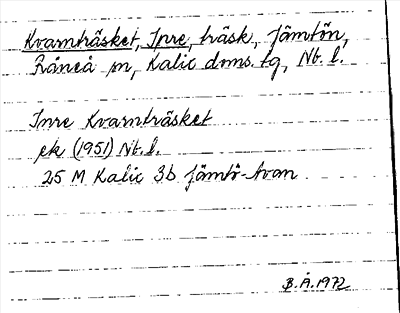 Kvarnträsket, Inre, träsk, Jämtön,
Råneå sn, Kalix doms. tg, Nb. l.
Inre Kvarnträsket
ek (1951) Nb. l.
25 M Kalix 3b Jämtö-Avan
B.Å. 1972